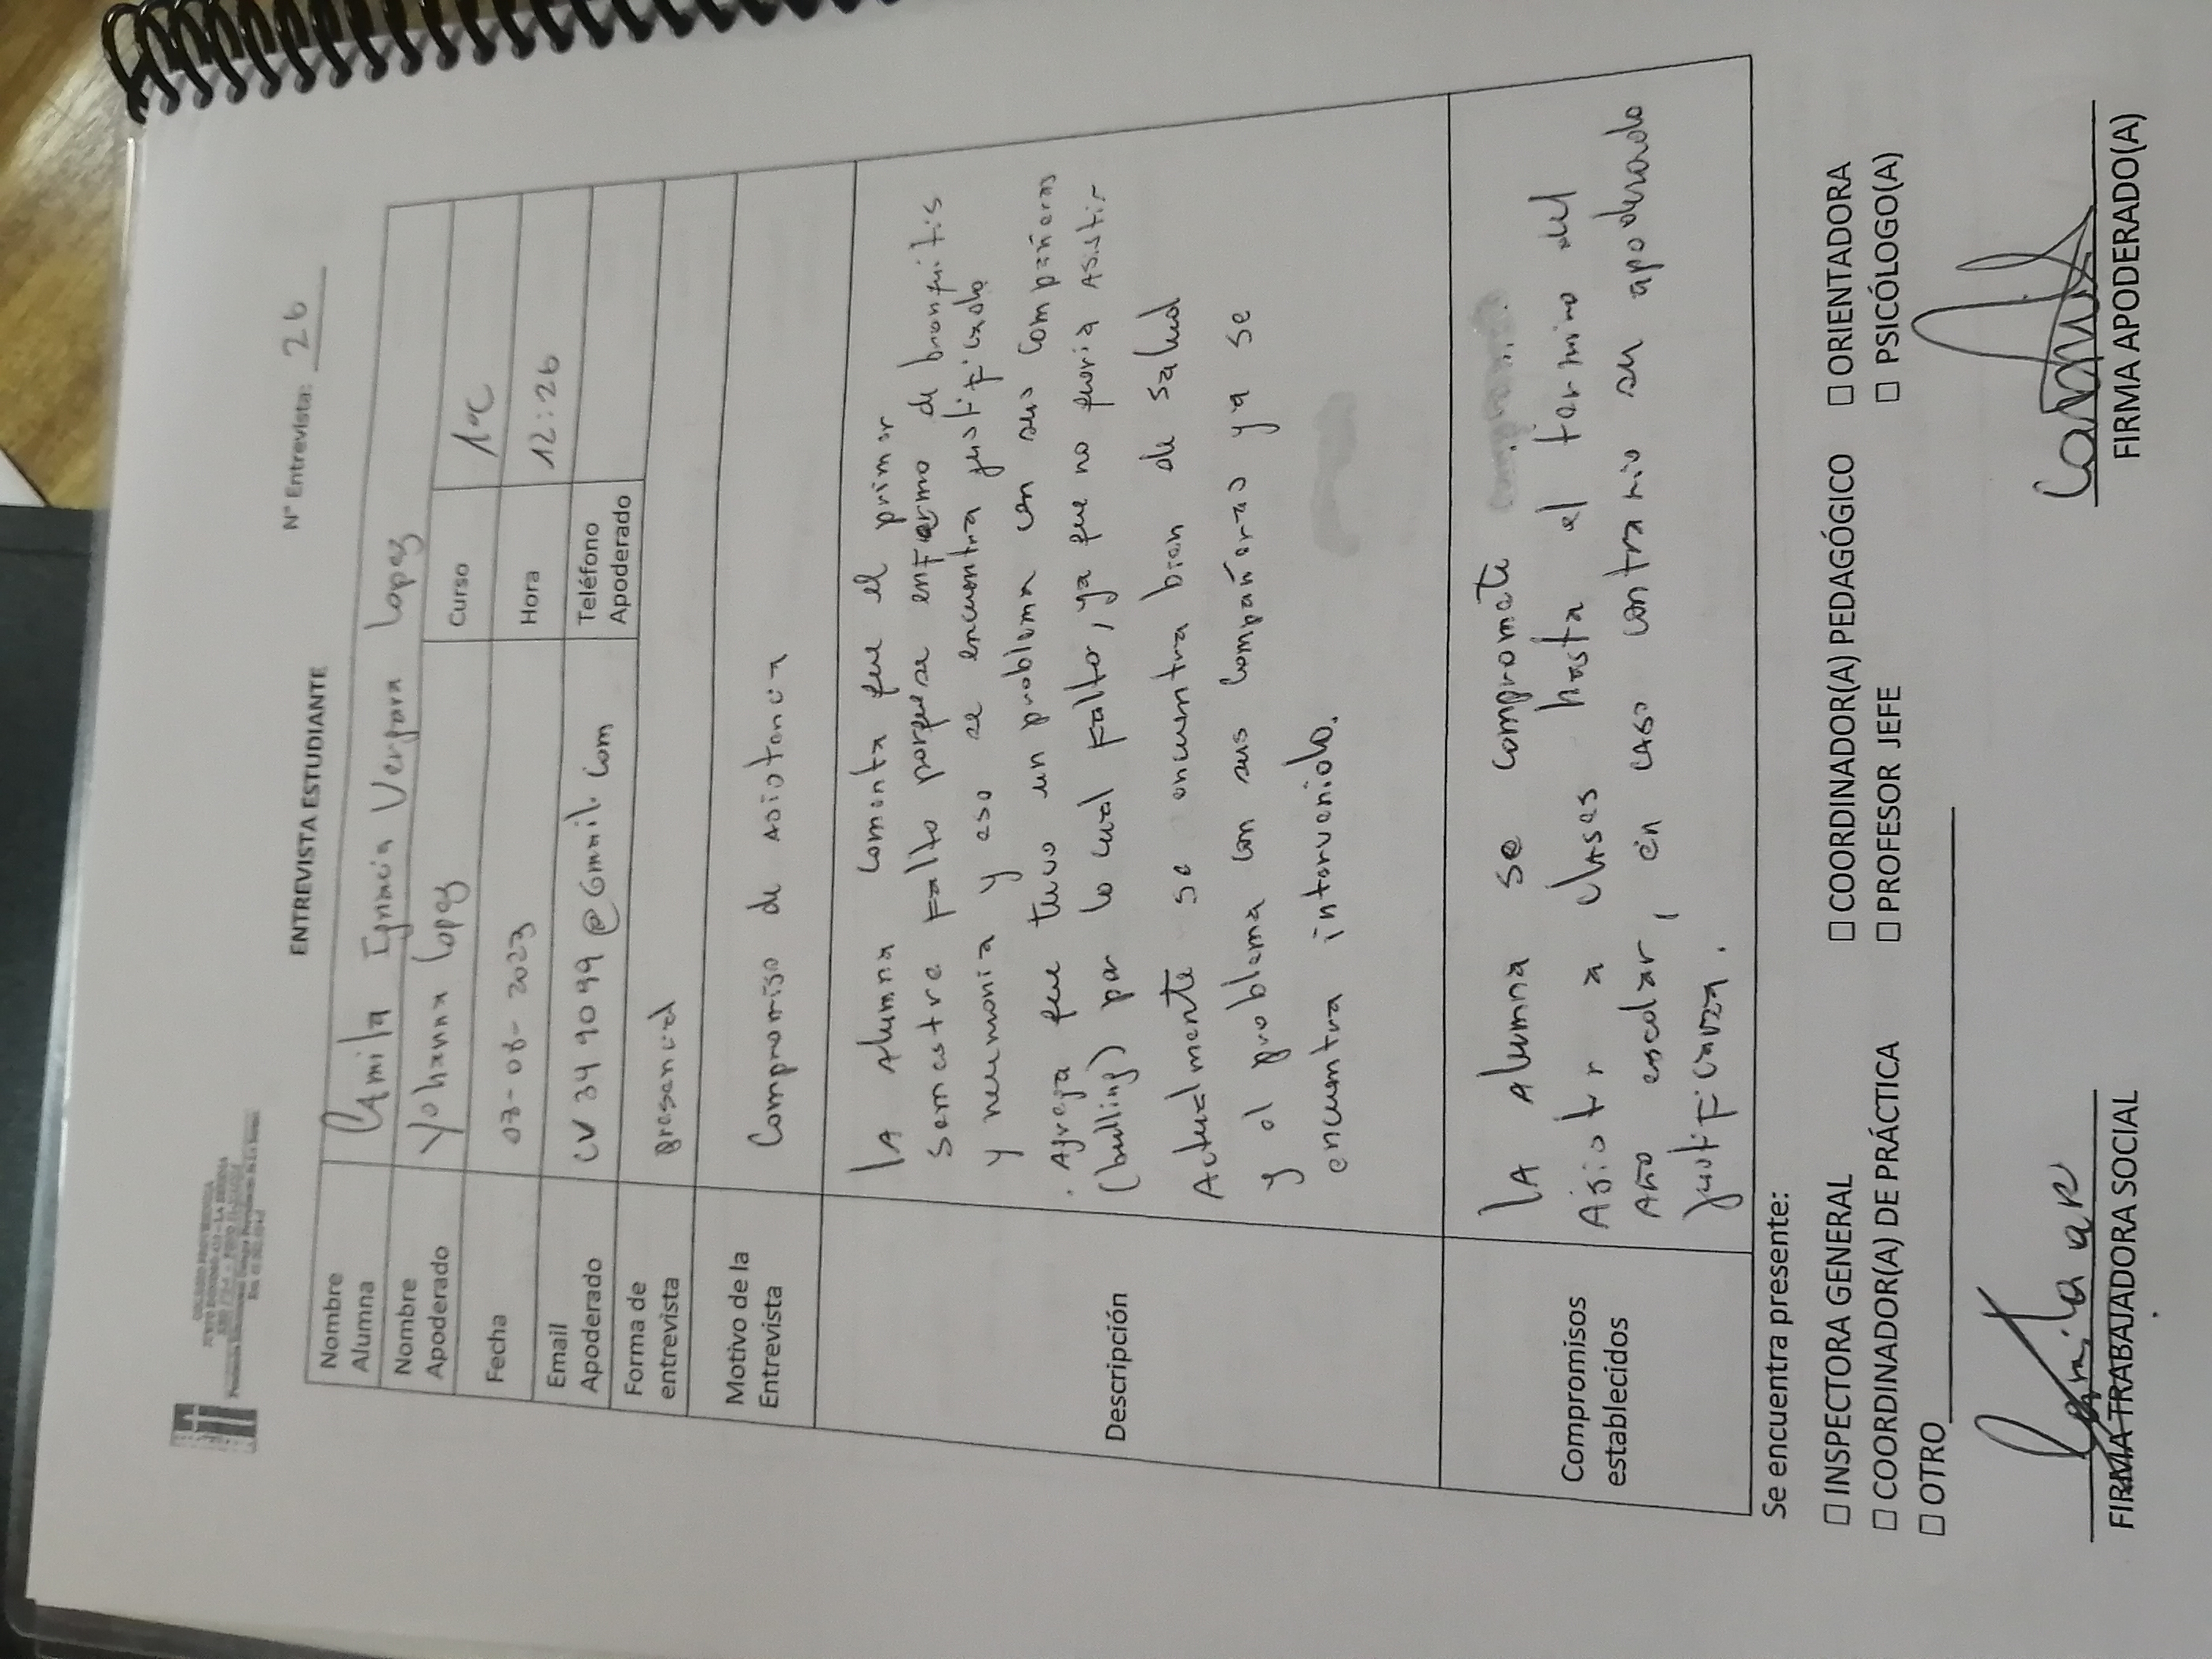 COLEGIO PROVIDENCIA
ENTREVISTA ESTUDIANTE
N° Entrevista: 26
Nombre Alumna Camila Ignacia Vergara Lopez
Nombre Apoderado Yohanna Lopez Curso 1ºC
Fecha 07-08-2023 Hora 12:26
Email Apoderado CV349099@Gmail.com Teléfono Apoderado
Forma de entrevista presencial
Motivo de la Entrevista Compromiso de Asistencia
Descripción
LA Alumna comenta que el primer
semestre Falto porque se enfermo de bronquitis
y neumonia y eso se encuentra justificado
. Agrega que tuvo un problema con sus compañeras
(bulling) por lo cual Falto, ya que no queria Asistir
Actualmente se encuentra bien de salud
y el problema con sus compañeras ya se
encuentra intervenido.
Compromisos establecidos
LA Alumna se compromete
Asistir a clases hasta el termino del
Año escolar, en caso contrario su apoderado
justificara.
Se encuentra presente:
☐ INSPECTORA GENERAL ☐ COORDINADOR(A) PEDAGÓGICO ☐ ORIENTADORA
☐ COORDINADOR(A) DE PRÁCTICA ☐ PROFESOR JEFE ☐ PSICÓLOGO(A)
☐ OTRO
FIRMA TRABAJADORA SOCIAL FIRMA APODERADO(A)